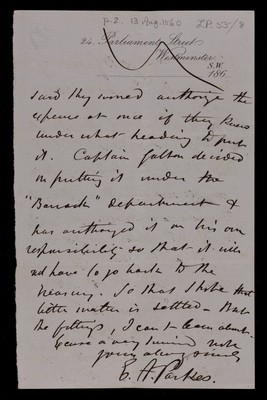 p.2. 13 Aug. 1860 LP. 55/8
24, Parliament Street,
Westminster
S.W.
186
said they would authorize the
expense at once if they knew
under what heading to put
it. Captain Galton decided
on putting it under the
"Barrack" department &
has authorized it on his own
responsibility so that it will
not have to go back to the
Treasury. So that I hope that
little matter is settled – But
the fittings, I can't learn about –
Excuse a very hurried note
yours always
E. A. Parkes.